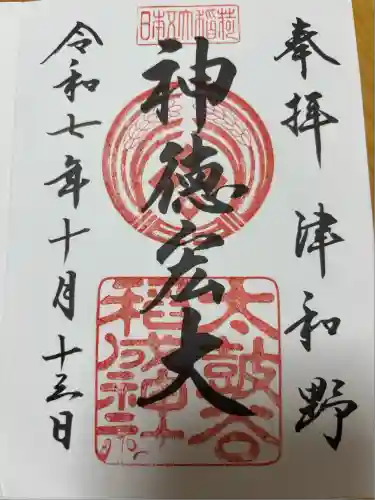 奉拝 津和野
日本五大稲荷
神徳宏大
太鼓谷稲成神社
令和七年十月十三日